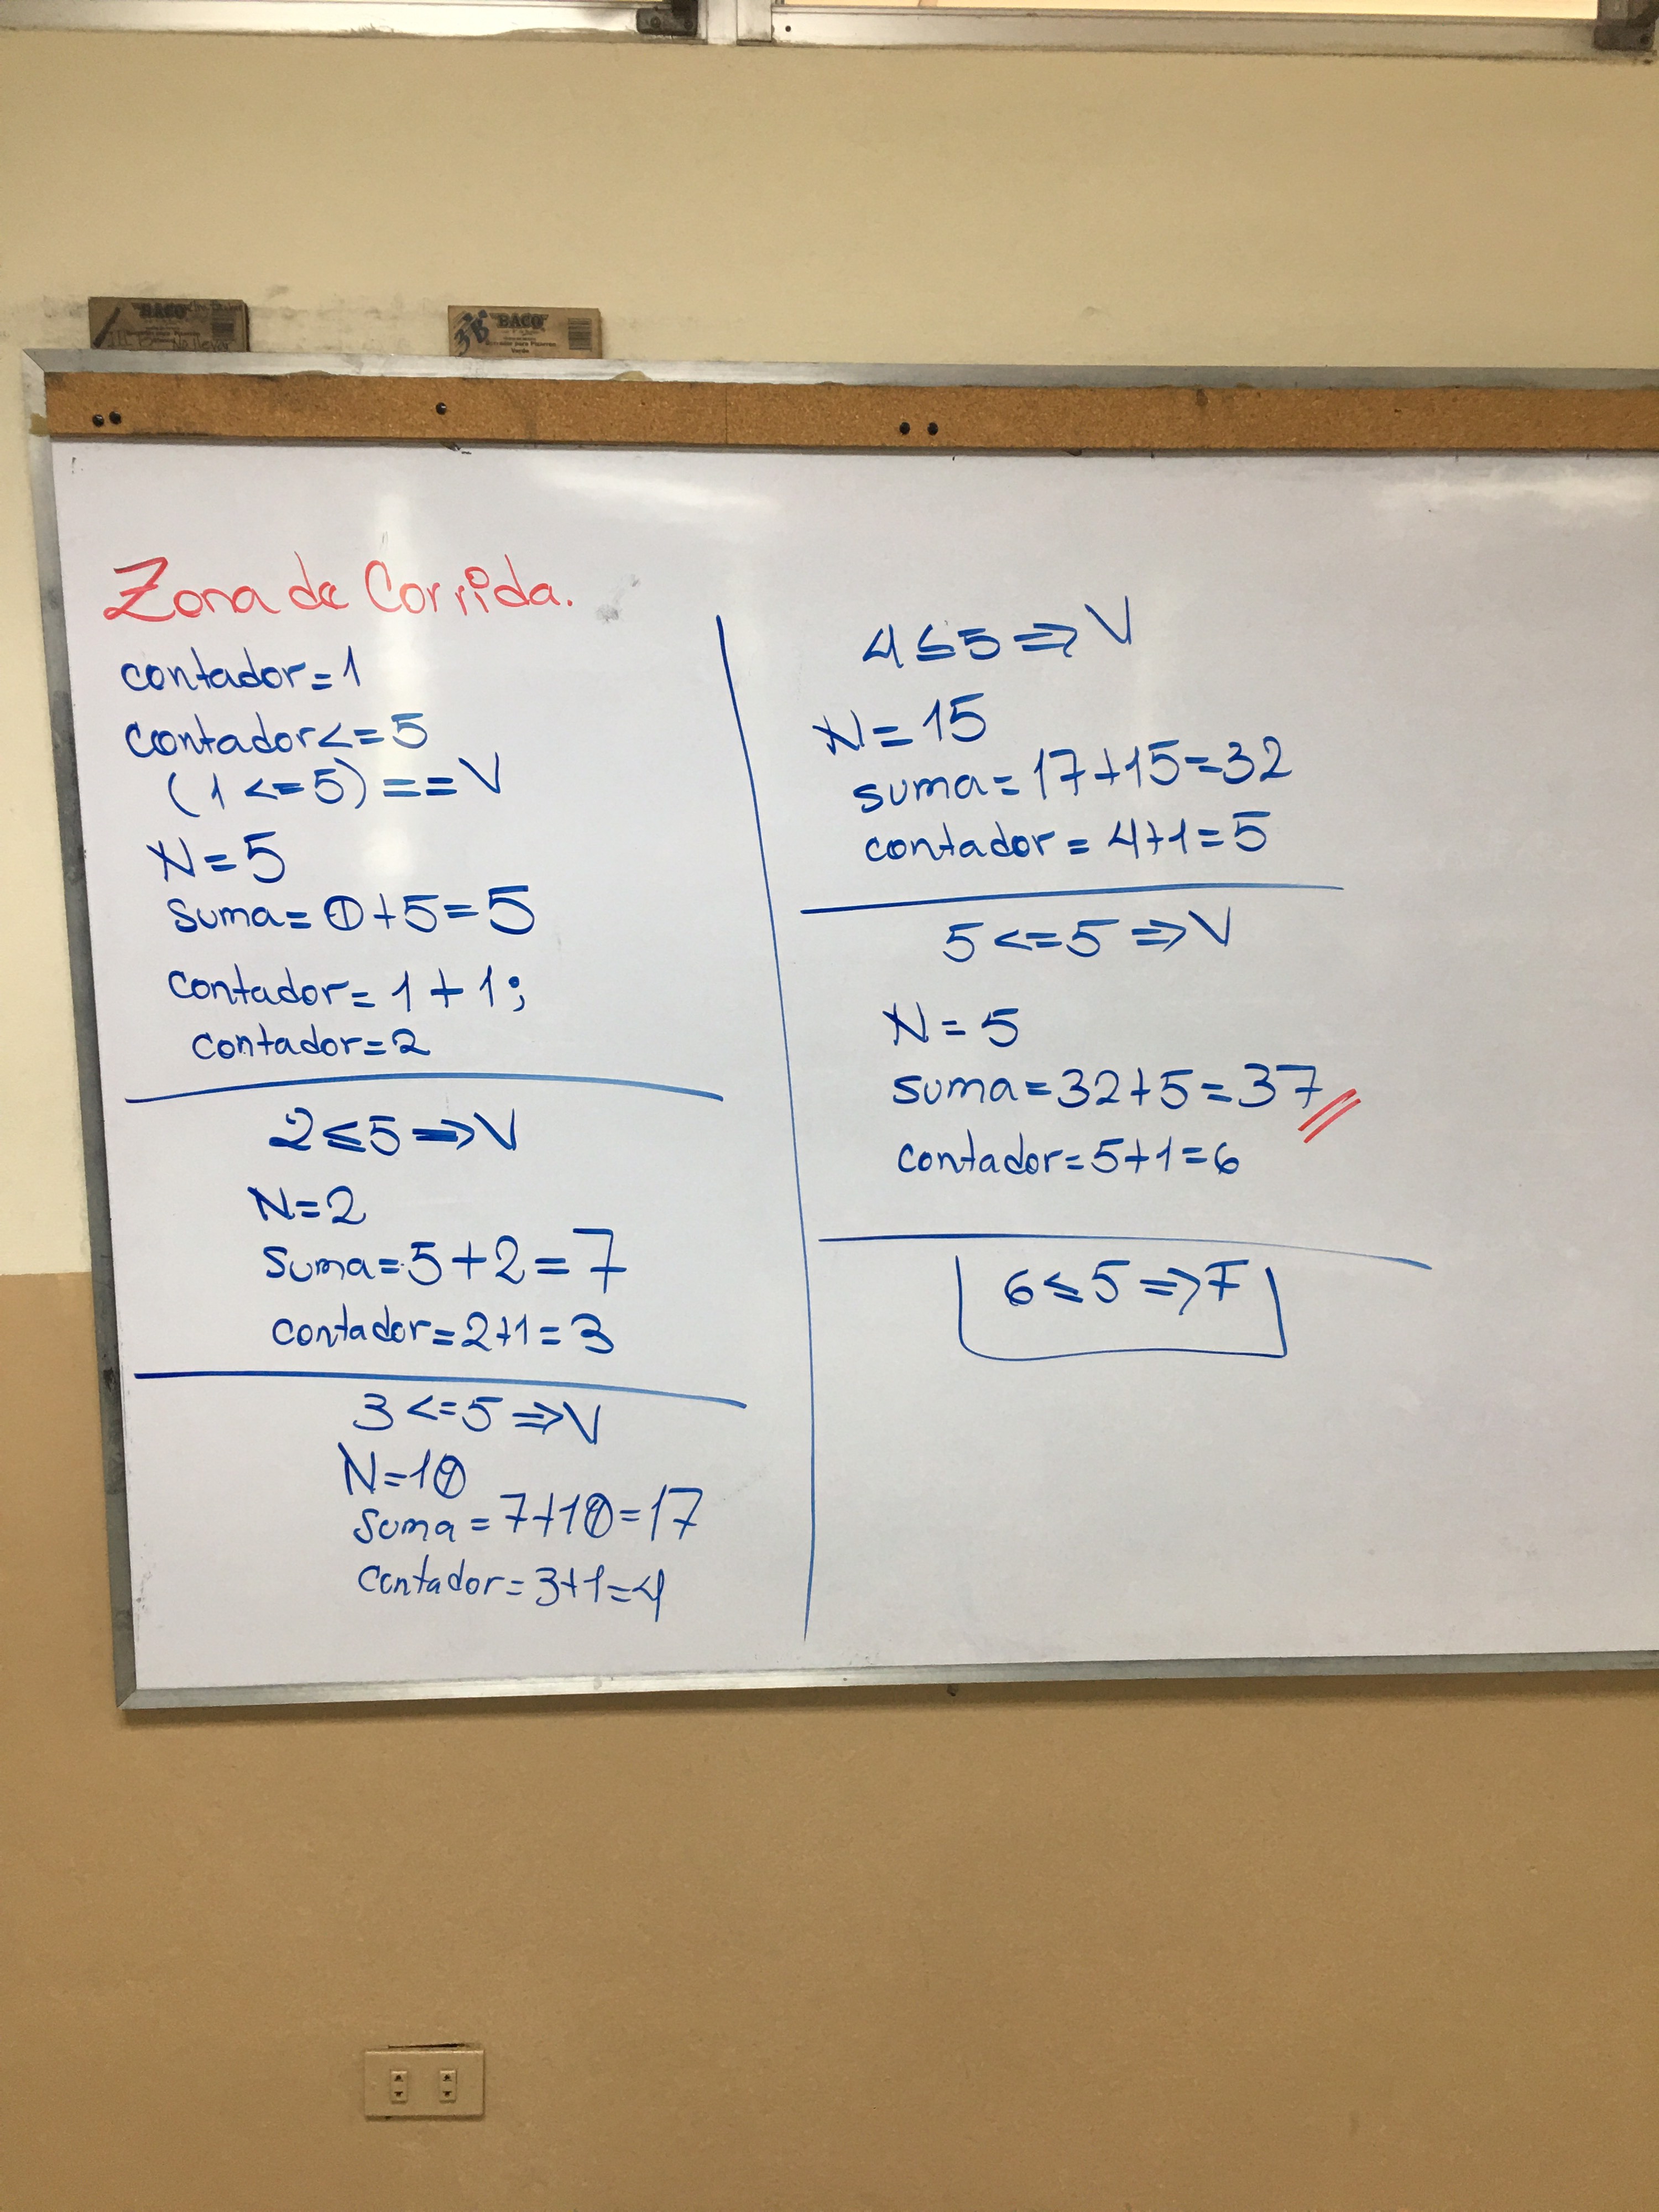 BACO
3B BACO
Zona de Corrida.
contador=1
contador<=5
(1<=5)==V
N=5
suma=0+5=5
contador=1+1;
contador=2
2≤5⇒V
N=2
suma=5+2=7
contador=2+1=3
3<=5⇒V
N=10
suma=7+10=17
contador=3+1=4
4≤5⇒V
N=15
suma=17+15=32
contador=4+1=5
5<=5⇒V
N=5
suma=32+5=37
contador=5+1=6
6≤5⇒F